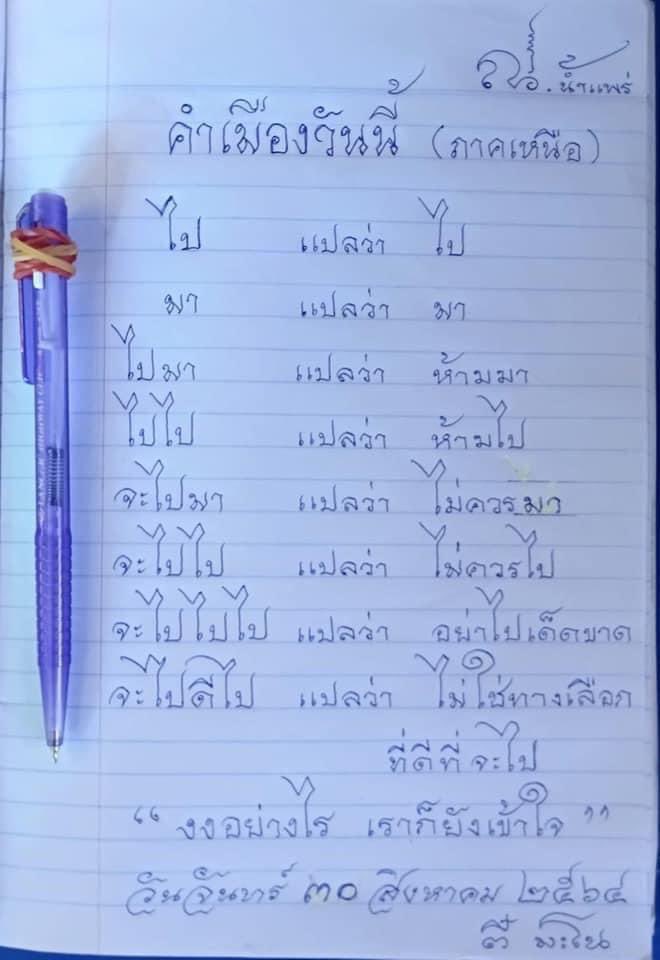 น้ำแพร่
คำเมืองวันนี้ (ภาคเหนือ)
ไป แปลว่า ไป
มา แปลว่า มา
ไปมา แปลว่า ห้ามมา
ไปไป แปลว่า ห้ามไป
จะไปมา แปลว่า ไม่ควรมา
จะไปไป แปลว่า ไม่ควรไป
จะไปไปไป แปลว่า อย่าไปเด็ดขาด
จะไปดีไป แปลว่า ไม่ใช่ทางเลือก
ที่ดีที่จะไป
“ งงอย่างไร เราก็ยังเข้าใจ ”
วันจันทร์ ๓๐ สิงหาคม ๒๕๖๔